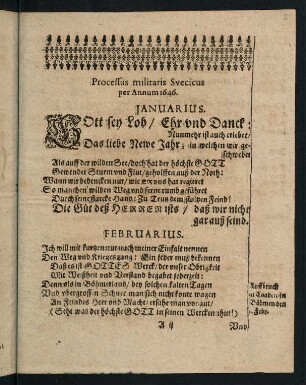 Processus militaris Svecicus
per Annum 1646.
JANUARIUS.
GOtt sey Lob / Ehr vnd Danck:
Nunmehr ist auch erlebet/
Das liebe Newe Jahr; in welchen wir ge-
schwebet
Als auff der wilden See/ doch hat der höchste GOTT
Gewendet Sturm vnd Flut/ geholffen auß der Noth:
Wann wir bedencken nur/ wie ER vns hat regieret
So manchen wilden Weg vnd ferrn vnnd geführet
Durch seine starcke Hand: Zu Trutz dem stoltzen Feind!
Die Güt deß HERREN ists / daß wir nicht
gar auß seind.
FEBRUARIUS.
Ich will mit kurtzem nur nach meiner Einfalt nennen
Den Weg vnd Kriegesgang: Ein jeder muß bekennen
Daß es ist GOTTES Werck/ der vnsre Obrigkeit
Mit Weißheit vnd Verstand begabet jederzeit:
Dann als in Böhmerland/ bey solchen kalten Tagen
Vnd vbergrossen Schnee man sich nicht konte wagen
An Feindes Heer vnd Macht/ ersahe man vor aut/
(Seht was der höchste GOTT in seinen Wercken thut!)
Auffbruch
Böhmen den
Febr.
A ij
Vnd